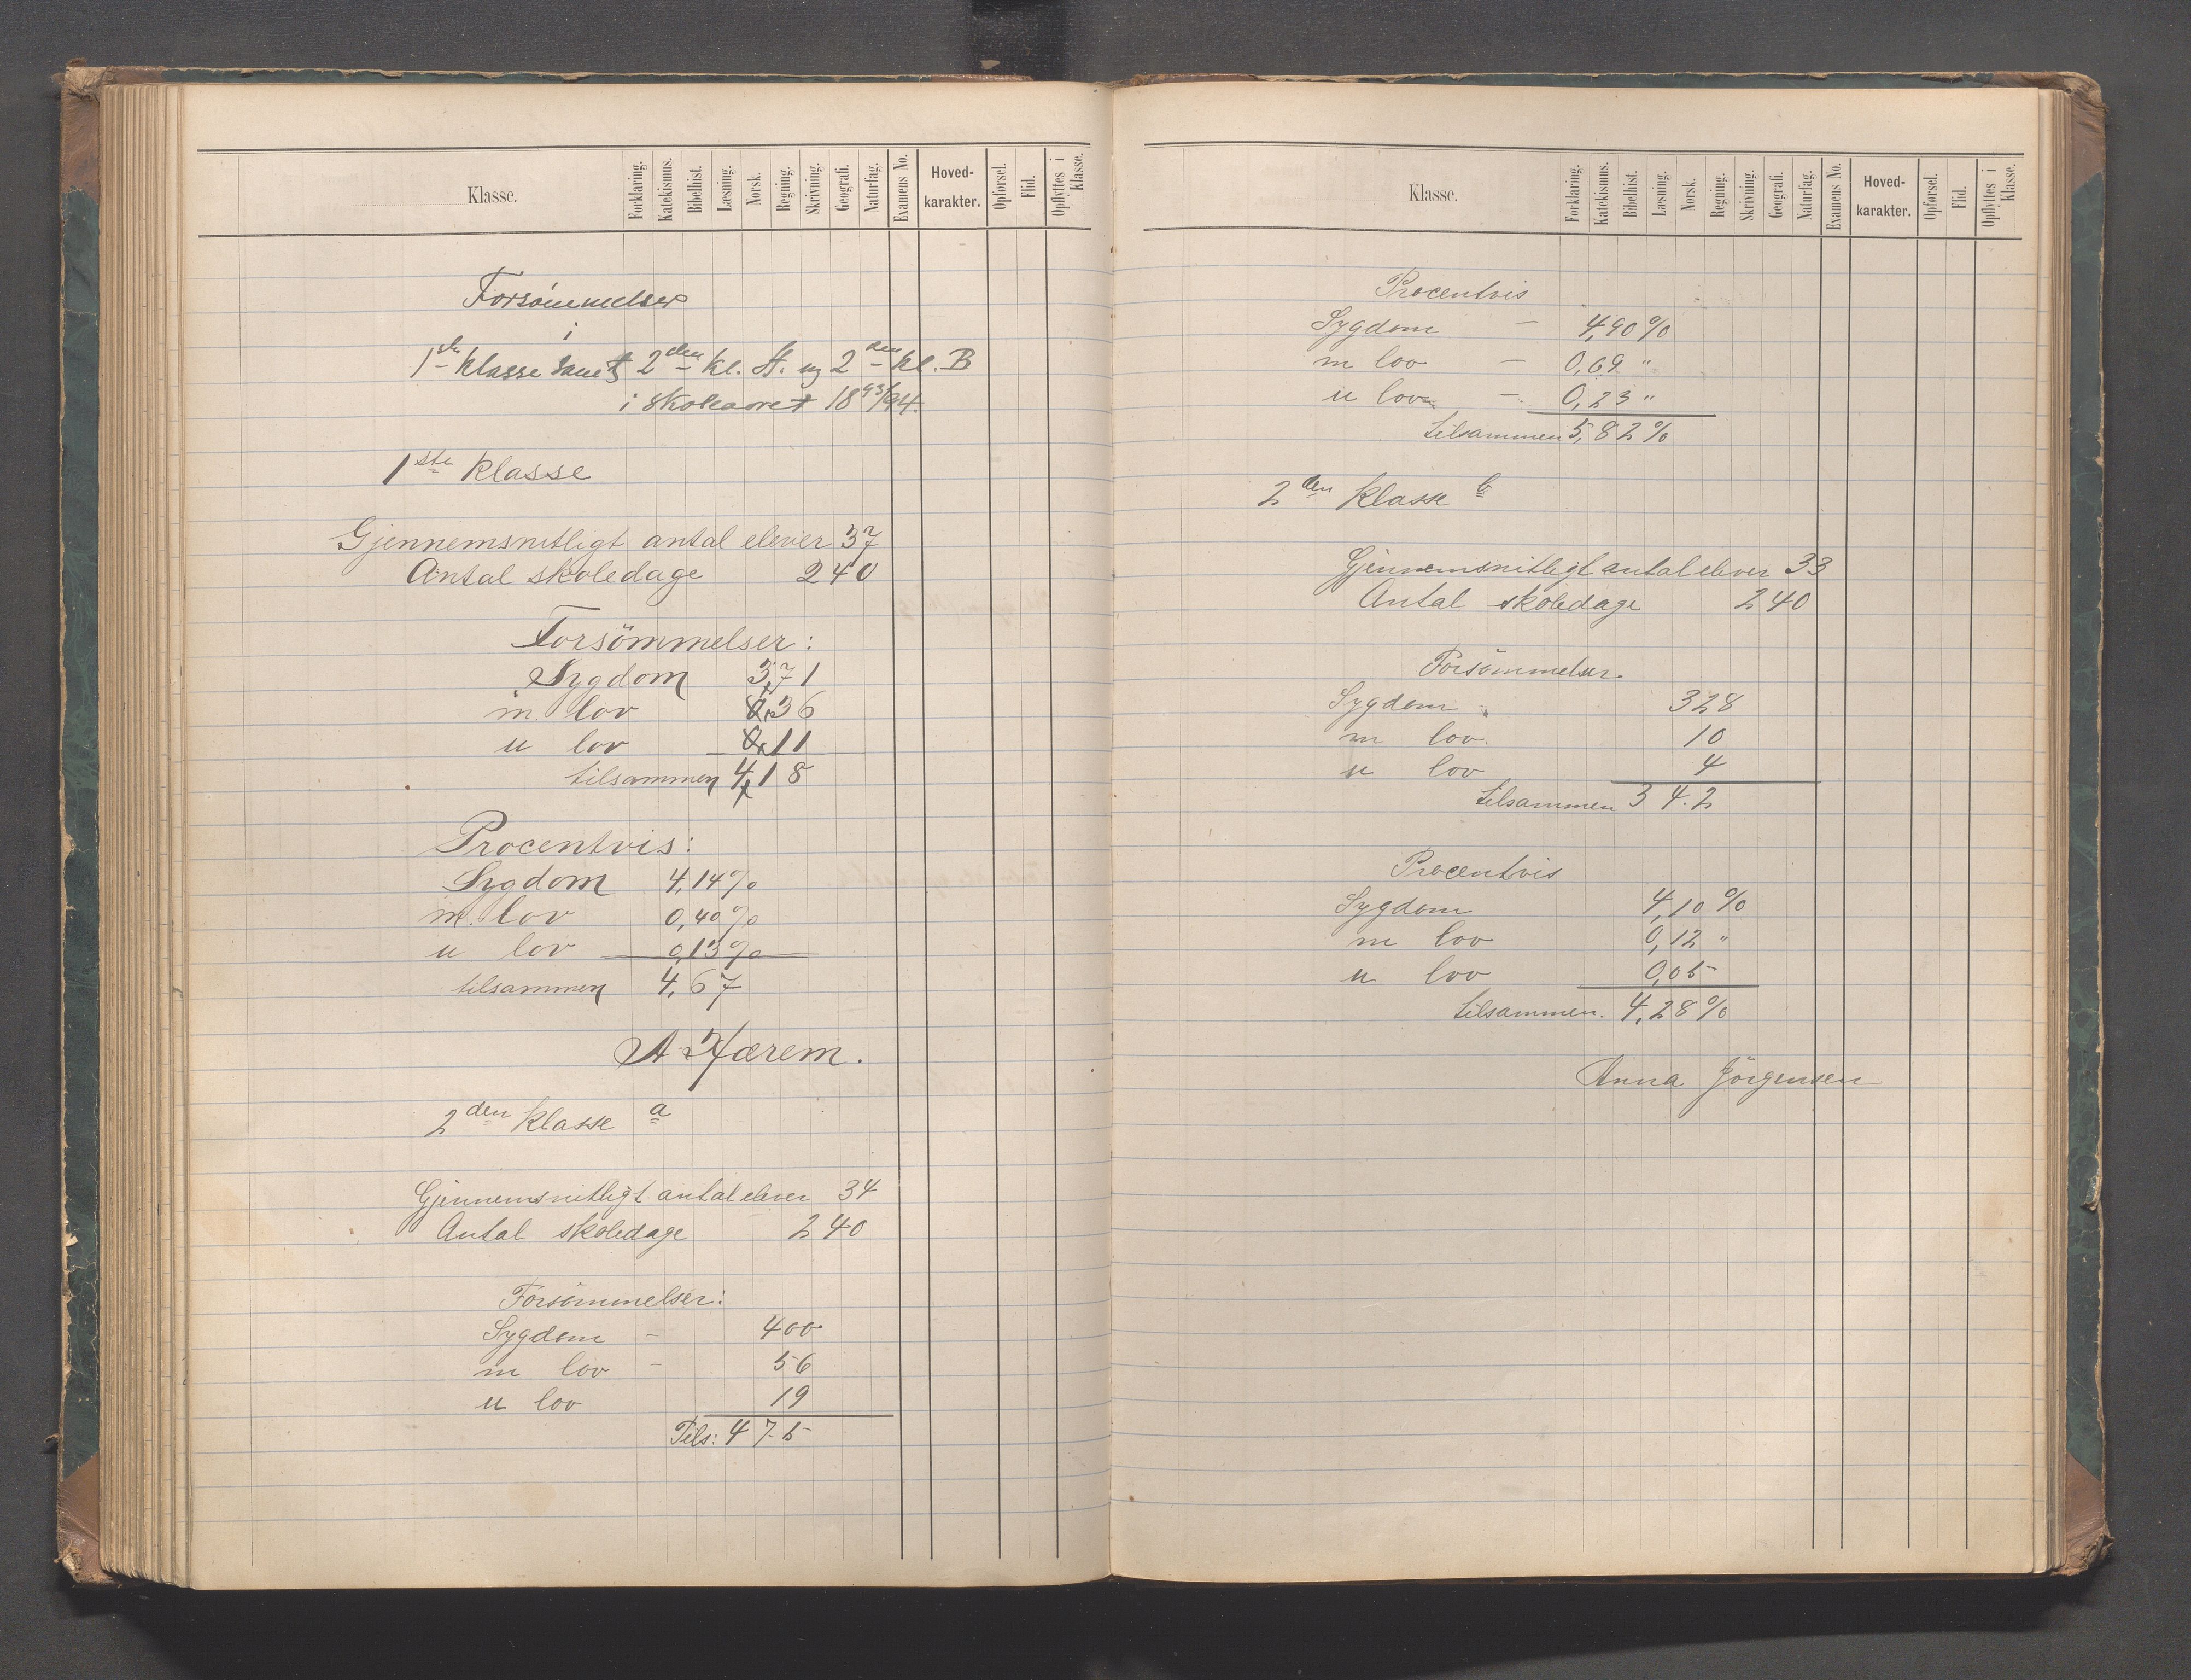 Klasse. Forklaring. Katekismus. Bibelhist. Læsning. Norsk. Regning. Skrivning. Geografi. Naturfag. Examens No. Hoved-karakter. Opførsel. Flid. Opflyttes i Klasse.
Forsömmelser
i
1ste Klasse samt 2den Kl. A. og 2den Kl. B
i skoleaaret 1893/94.
1ste Klasse
Gjennemsnitligt antal elever 37
Antal skoledage 240
Forsömmelser:
Sygdom 371
m. lov 36
u lov 11
tilsammen 418
Procentvis:
Sygdom 4,14%
m. lov 0,40%
u lov 0,13%
tilsammen 4,67
A Hærem.
2den Klasse a
Gjennemsnitligt antal elever 34
Antal skoledage 240
Forsömmelser:
Sygdom - 400
m lov - 56
u lov 19
Tils: 475
Klasse. Forklaring. Katekismus. Bibelhist. Læsning. Norsk. Regning. Skrivning. Geografi. Naturfag. Examens No. Hoved-karakter. Opførsel. Flid. Opflyttes i Klasse.
Procentvis
Sygdom - 4,90%
m lov - 0,69 "
u lov - 0,23 "
tilsammen 5,82%
2den Klasse b
Gjennemsnitligt antal elever 33
Antal skoledage 240
Forsömmelser
Sygdom 328
m lov. 10
u lov 4
tilsammen 342
Procentvis
Sygdom 4,10%
m lov 0,12 "
u lov 0,05
tilsammen. 4,28%
Anna Jörgensen